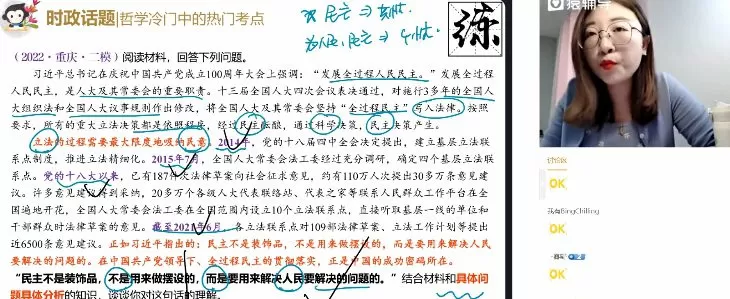 时政话题|哲学冷门中的热门考点
练
(2022·重庆·二模)阅读材料，回答下列问题。
习近平总书记在庆祝中国共产党成立100周年大会上强调："发展全过程人民民主。"发展全过程
人民民主，是人大及其常委会的重要职责。十三届全国人大四次会议表决通过，对施行3多年的全国人
大组织法和全国人大议事规则作出修改，将全国人大及其常委会坚持"全过程民主"写入法律。按照
要求，所有的重大立法决策都是依照程序，经过民主酝酿，通过科学决策，民主决策产生。
立法的过程需要最大限度地吸纳民意，2014年，党的十八届四中全会决定提出，建立基层立法联
系点制度，推进立法精细化。2015年7月，全国人大常委会法工委经过充分调研，确定四个基层立法联
系点。党的十八大以来，已有187件次法律草案向社会征求意见，约有110万人次提出30多万条意见建
议。许多意见建议得到采纳，20多万个各级人大代表联络站、代表之家等联系人民群众工作平台在全
国遍地开花，全国人大常委会法工委在全国范围内设立10个立法联系点，直接听取基层一线的单位和
干部群众对法律草案的意见。截至2021年6月，各立法联系点对109部法律草案、立法工作计划等提出
近6500条意见建议。正如习近平指出的：民主不是装饰品，不是用来做摆设的，而是要用来解决人民
要解决的问题的。在中国共产党领导下、全过程民主的贯彻落实，正是中国的成功密码所在。
"民主不是装饰品，不是用来做摆设的，而是要用来解决人民要解决的问题的。"结合材料和具体问
题具体分析的知识，谈谈你对这句话的理解。
猿辅导
讨论区
OK
我有BingChilling
OK
OK